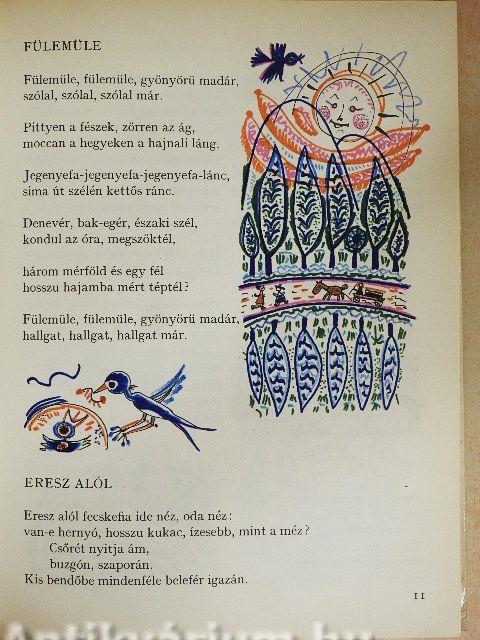 FÜLEMÜLE
Fülemüle, fülemüle, gyönyörü madár,
szólal, szólal, szólal már.
Pittyen a fészek, zörren az ág,
moccan a hegyeken a hajnali láng.
Jegenyefa-jegenyefa-jegenyefa-lánc,
sima út szélén kettős ránc.
Denevér, bak-egér, északi szél,
kondul az óra, megszöktél,
három mérföld és egy fél
hosszu hajamba mért téptél?
Fülemüle, fülemüle, gyönyörü madár,
hallgat, hallgat, hallgat már.
ERESZ ALÓL
Eresz alól fecskefia ide néz, oda néz:
van-e hernyó, hosszu kukac, ízesebb, mint a méz?
Csőrét nyitja ám,
buzgón, szaporán.
Kis bendőbe mindenféle belefér igazán.
11
Antikvárium.hu